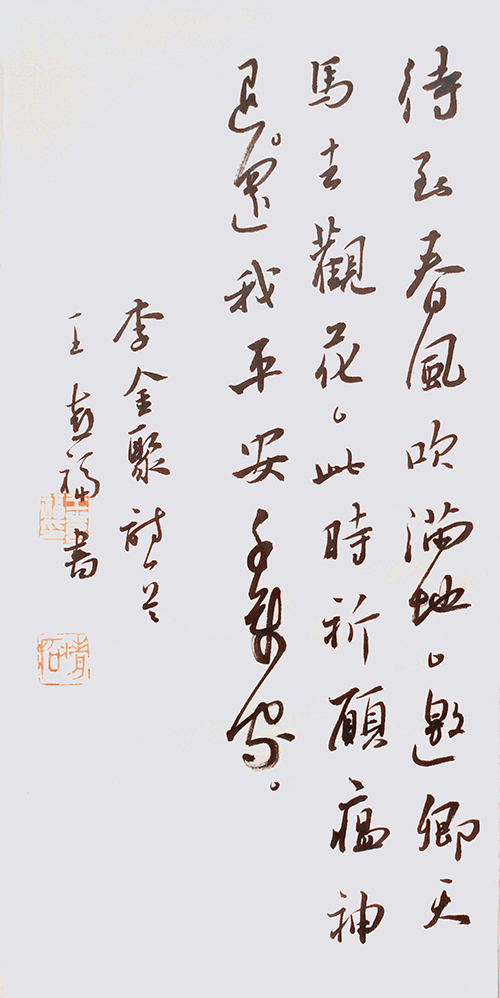 待到春風吹滿地。邀卿天
馬去觀花。此時祈願瘟神
退。還我平安千萬家。
李金聚詩
王福書